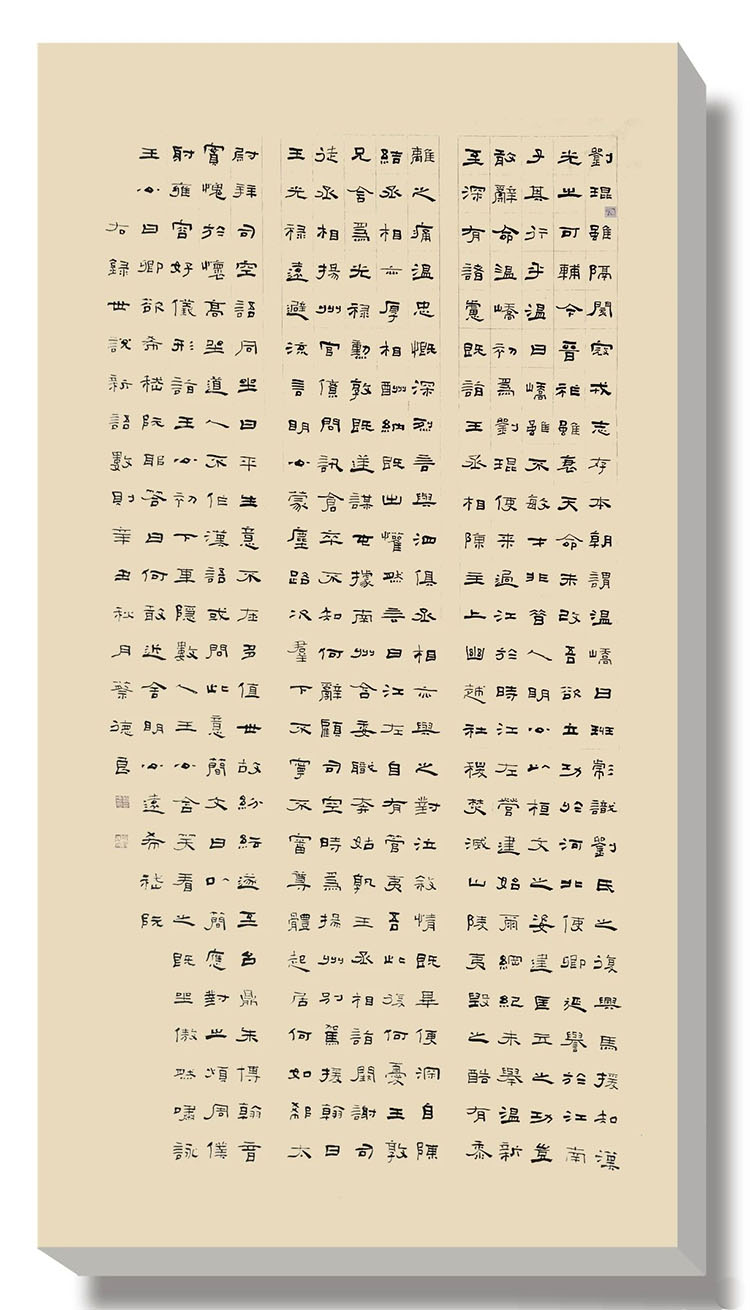 劉琨雖隔閡寇戎志存本朝謂溫嶠曰班彪識劉氏之復興馬援知漢
光之可輔今晉祚雖衰天命未改吾欲立功於河北使卿延譽於江南
子其行乎溫曰嶠雖不敏才非昔人明公以桓文之姿建匡立之功豈
敢辭命溫嶠初為劉琨使來過江於時江左營建始爾綱紀未舉溫新
至深有諸慮既詣王丞相陳主上幽越社稷焚滅山陵夷毀之酷有黍
離之痛溫忠慨深烈言與泗俱丞相亦與之對泣敘情既畢便深自陳
結丞相亦厚相酬納既出懽然言曰江左自有管夷吾此復何憂王敦
兄含為光祿勳敦既逆謀屯據南州含委職奔姑孰王丞相詣闕謝司
徒丞相揚州官僚問訊倉卒不知何辭顧司空時為揚州別駕援翰曰
王光祿遠避流言明公蒙塵路次羣下不寧不審尊體起居何如郗太
尉拜司空語同坐曰平生意不在多值世故紛紜遂至台鼎朱博翰音
實愧於懷高坐道人不作漢語或問此意簡文曰以簡應對之煩周僕
射雍容好儀形詣王公初下車隱數人王公含笑看之既坐傲然嘯詠
王公曰卿欲希嵇阮耶答曰何敢近舍明公遠希嵇阮
右錄世說新語數則辛丑秋月蔡德良